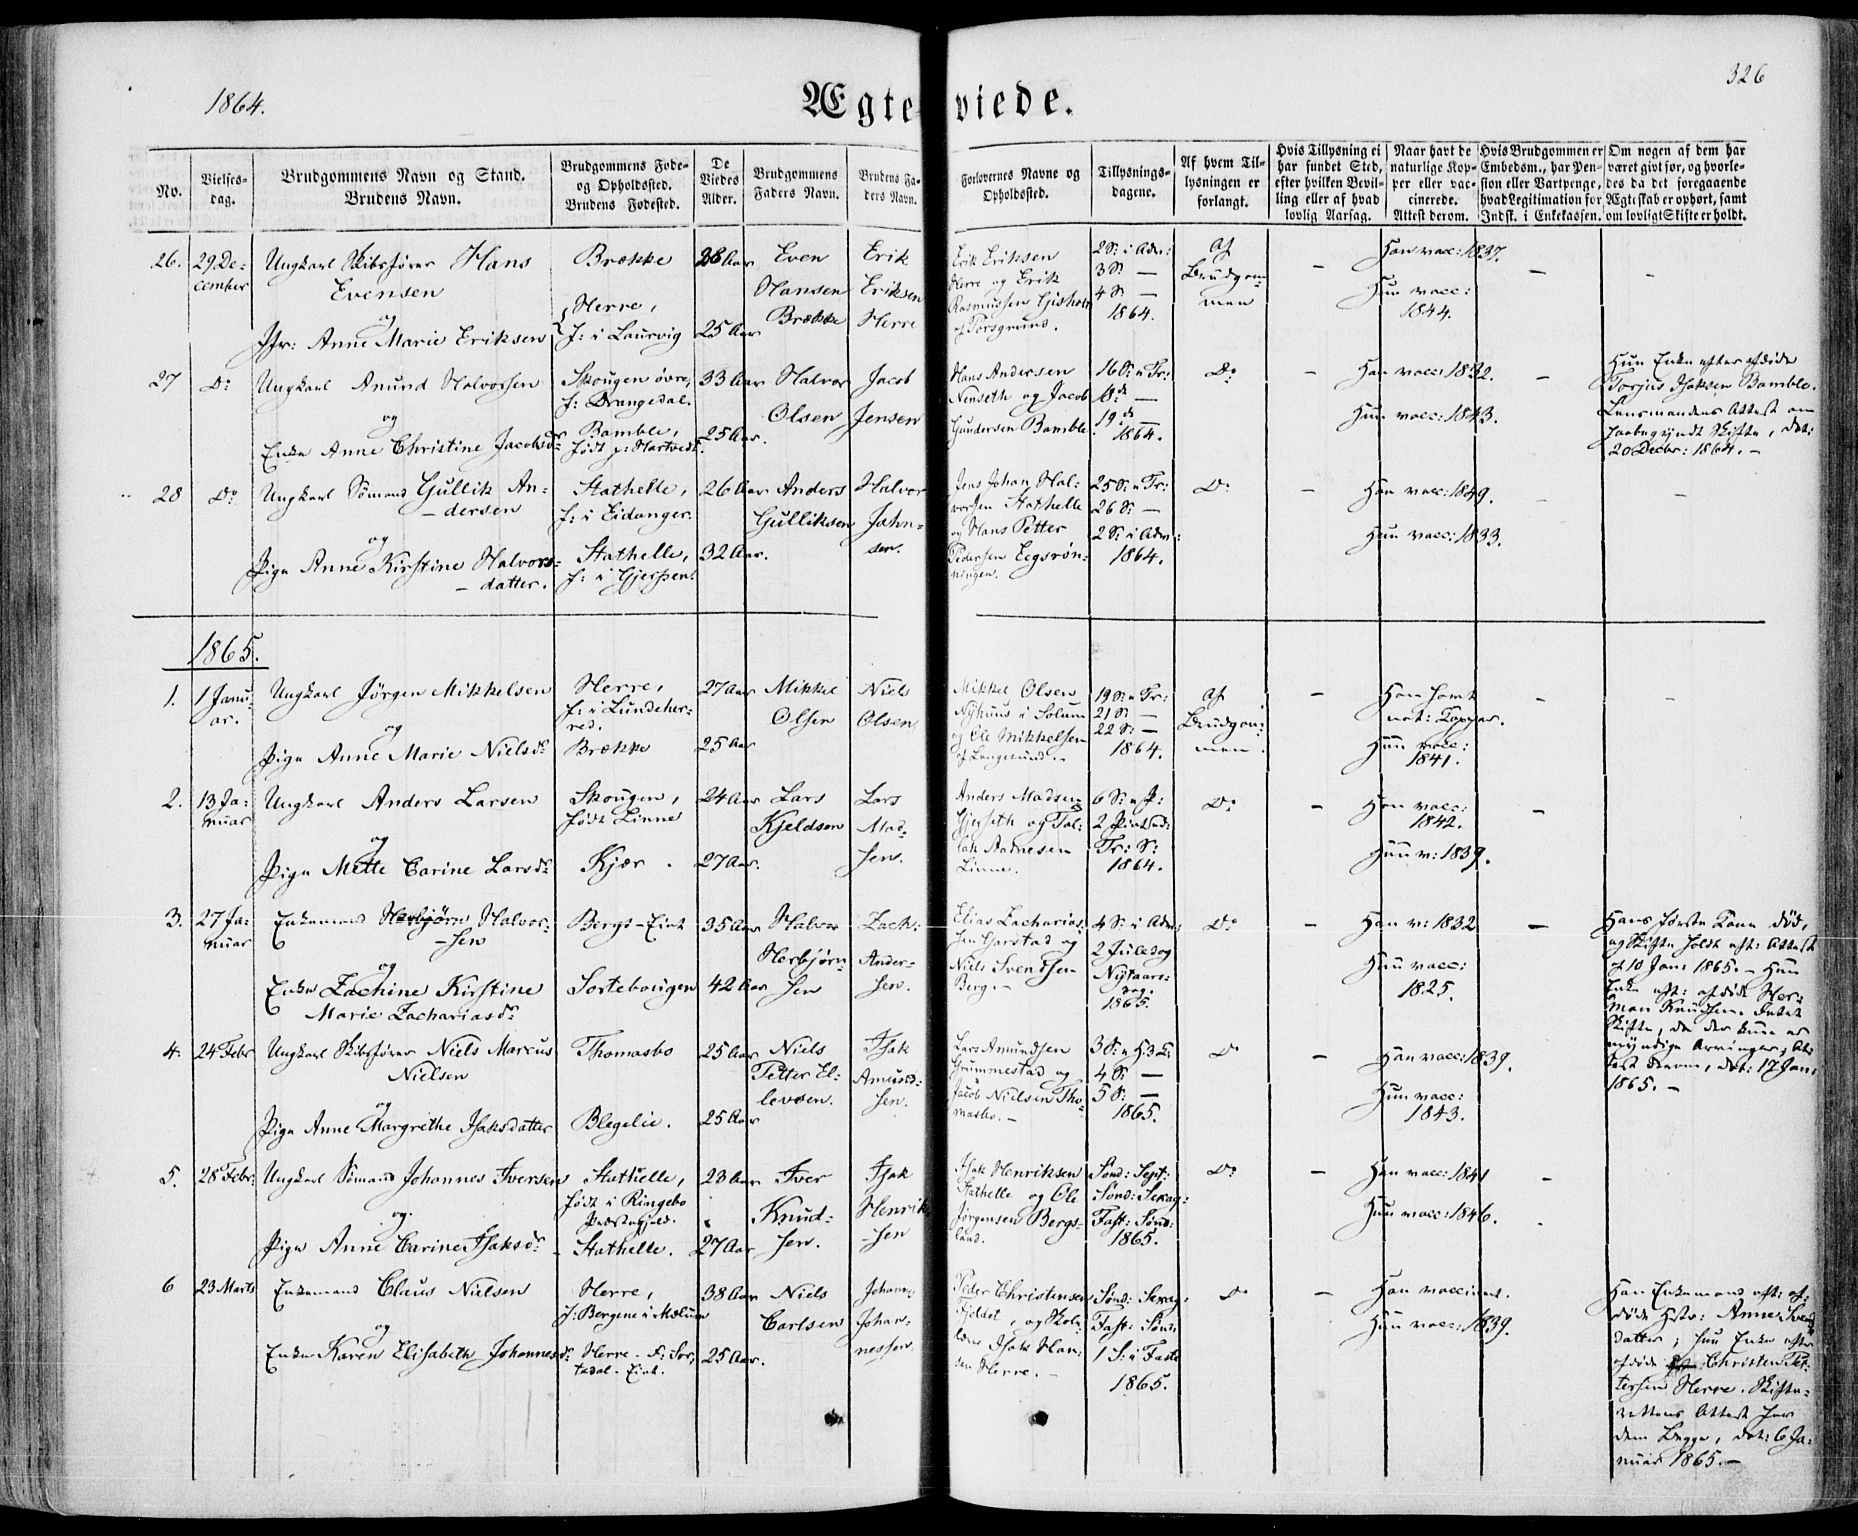 1864.
Ægteviede.
326
No.
Vielses-
dag.
Brudgommens Navn og Stand.
Brudens Navn.
Brudgommens Føde-
og Opholdssted.
Brudens Fødested.
De
Viedes
Alder.
Brudgommens
Faders Navn.
Brudens Fa-
ders Navn.
Forlovernes Navne og
Opholdssted.
Tillysnings-
dagene.
Af hvem Til-
lysningen er
forlangt.
Hvis Tillysning ei
har fundet Sted,
efter hvilken Bevil-
ling eller af hvad
lovlig Aarsag.
Naar havt de
naturlige Kop-
per eller vac-
cinerede.
Attest derom.
Hvis Brudgommen er
Embedsm., har Pen-
sion eller Vartpenge,
hvad Legitimation for
Indsk. i Enkekassen.
Om nogen af dem har
været gift før, og hvorle-
des da det foregaaende
Ægteskab er ophørt, samt
om lovligt Skifte er holdt.
26.
29 De-
cember
Ungkarl Skibsfører Hans
Evensen
og
Jfr: Anne Marie Eriksen
Brække
Herre,
f: i Laurvig
28 Aar
25 Aar
Even
Hansen
Brække
Erik
Eriksen
Herre
Erik Eriksen
Herre og Erik
Rasmussen Gisholt
af Porsgrund.
2 S: i Adv:
3 S —
4 S —
1864.
Af
Brudgom-
men
–
Han vacc: 1837.
Hun vacc:
1844.
–
–
27
Do
Ungkarl Anund Halvorsen
og
Enke Anne Christine Jacobsdr
Skougen øvre,
f: Drangedal.
Bamble,
født p: Hartvedt.
33 Aar
25 Aar.
Halvor
Olsen
Jacob
Jensen
Hans Andersen
Nenseth og Jacob
Gundersen Bamble.
16 S: e Tr:
18de —
19 de —
1864.
Do
–
Han vacc: 1832.
Hun vacc: 1843.
–
Hun Enke efter afdøde
Torjus Isaksen Bamble.
Lensmandens Attest om
paabegyndt Skifte, dat:
20 Decbr: 1864. –
28
Do
Ungkarl Sømand Gullik An-
dersen
og
Pige Anne Kirstine Halvors-
datter.
Stathelle,
f: i Eidanger.
Stathelle,
f: i Gjerpen.
26 Aar
32 Aar.
Anders
Gulliksen
Halvor
John-
sen.
Jens Johan Hal-
vorsen Stathelle
og Hans Petter
Pedersen Eegsrøn-
ningen.
25 S: e Tr:
26 S: —
2 S: i Adv:
1864.
Do
–
Han vacc: 1849.
Hun vacc: 1833.
–
–
1865.
1.
1 Janu-
ar.
Ungkarl Jørgen Mikkelsen
og
Pige Anne Marie Nielsdr
Herre,
f: i Lundeher-
red.
Brække
27 Aar
25 Aar
Mikkel
Olsen
Niels
Olsen
Mikkel Olsen
Nyhuus i Solum
og Ole Mikkelsen
af Langesund. –
19 S: e Tr:
21 S: —
22 S: —
1864.
Af
Brudgom-
men.
–
Han havt
nat: Kopper.
Hun vacc:
1841.
–
–
2.
13 Ja-
nuar
Ungkarl Anders Larsen
og
Pige Mette Carine Larsdr
Skougen,
født Linne
Kjær.
24 Aar
27 Aar.
Lars
Kjeldsen
Lars
Mad-
sen.
Anders Madsen
Gjerseth og Tol-
lak Aadnesen
Linne.
6 S: e P:
2 Pintsed:
Tr: S:
1864.
Do
–
Han vacc:
1842.
Hun v: 1839.
–
3.
27 Ja-
nuar
Enkemand Herbjørn Halvor-
sen
og
Enke Zachine Kirstine
Marie Zachariasdr
Bergs-Eiet
Sortebougen
35 Aar
42 Aar
Halvor
Herbjørn-
sen
Zach:
Ander-
sen.
Elias Zacharias-
sen Gjerstad og
Niels Svendsen
Berg. –
4 S: i Adv:
2 Juledag
Nytaars-
dag.
1865.
Do
–
Han v: 1832
Hun vacc:
1825.
–
Hans første Kone død,
og Skifte holdt eft: Attest
af 10 Jan: 1865. – Hun
Enke eft: afdøde Her-
man Knudsen. Intet
Skifte, da der kun er
myndige Arvinger; At-
test derom, dat: 17 Jan:
1865. –
4.
24 Febr
Ungkarl Skibsfører Niels Marcus
Nielsen
og
Pige Anne Margrethe Isaksdatter
Thomasbo
Blegelie.
25 Aar
25 Aar
Niels
Petter El-
levsen.
Isak
Amund-
sen.
Lars Amundsen
Grummestad og
Jacob Nielsen Tho-
masbo. –
3 S: e H: 3 K:
4 S: —
5 S: —
1865.
Do
–
Han vacc: 1839.
Hun vacc:
1843.
5.
28 Febr:
Ungkarl Sømand Johannes Iversen
og
Pige Anne Carine Isaksdr
Stathelle,
født i Ringebo
Præstegjeld.
Stathelle.
23 Aar
27 Aar
Iver
Knud-
sen.
Isak
Henrik-
sen
Isak Henriksen
Stathelle og Ole
Jørgensen Bergs-
land.
Sønd: Sept:
Sønd: Sexag:
Fast: Sønd:
1865.
Do
–
Han vacc: 1841
Hun vacc: 1846.
–
6
23 Marts
Enkemand Claus Nielsen
og
Enke Karen Elisabeth Johannesdr
Herre,
f: Bergene i Mælum
Herre – f: Sor-
tedal. Eiet.
38 Aar
25 Aar.
Niels
Carlsen
Johannes
Johan-
nessen
Peder Christensen
Fjeldet, og Skole-
lærer Isak Han-
sen Herre. –
Sønd: Sexag:
Fast: Sønd:
1 S: i Faste
1865.
Do
–
Han vaccineret.
Hun vacc: 1839.
Han Enkemand eft: af-
døde Hstr: Anne Svends-
datter; hun Enke efter
afdøde Christen Pet-
tersen Herre. Skifte-
rettens Attest for
dem begge, dat: 6 Ja-
nuar 1865. –